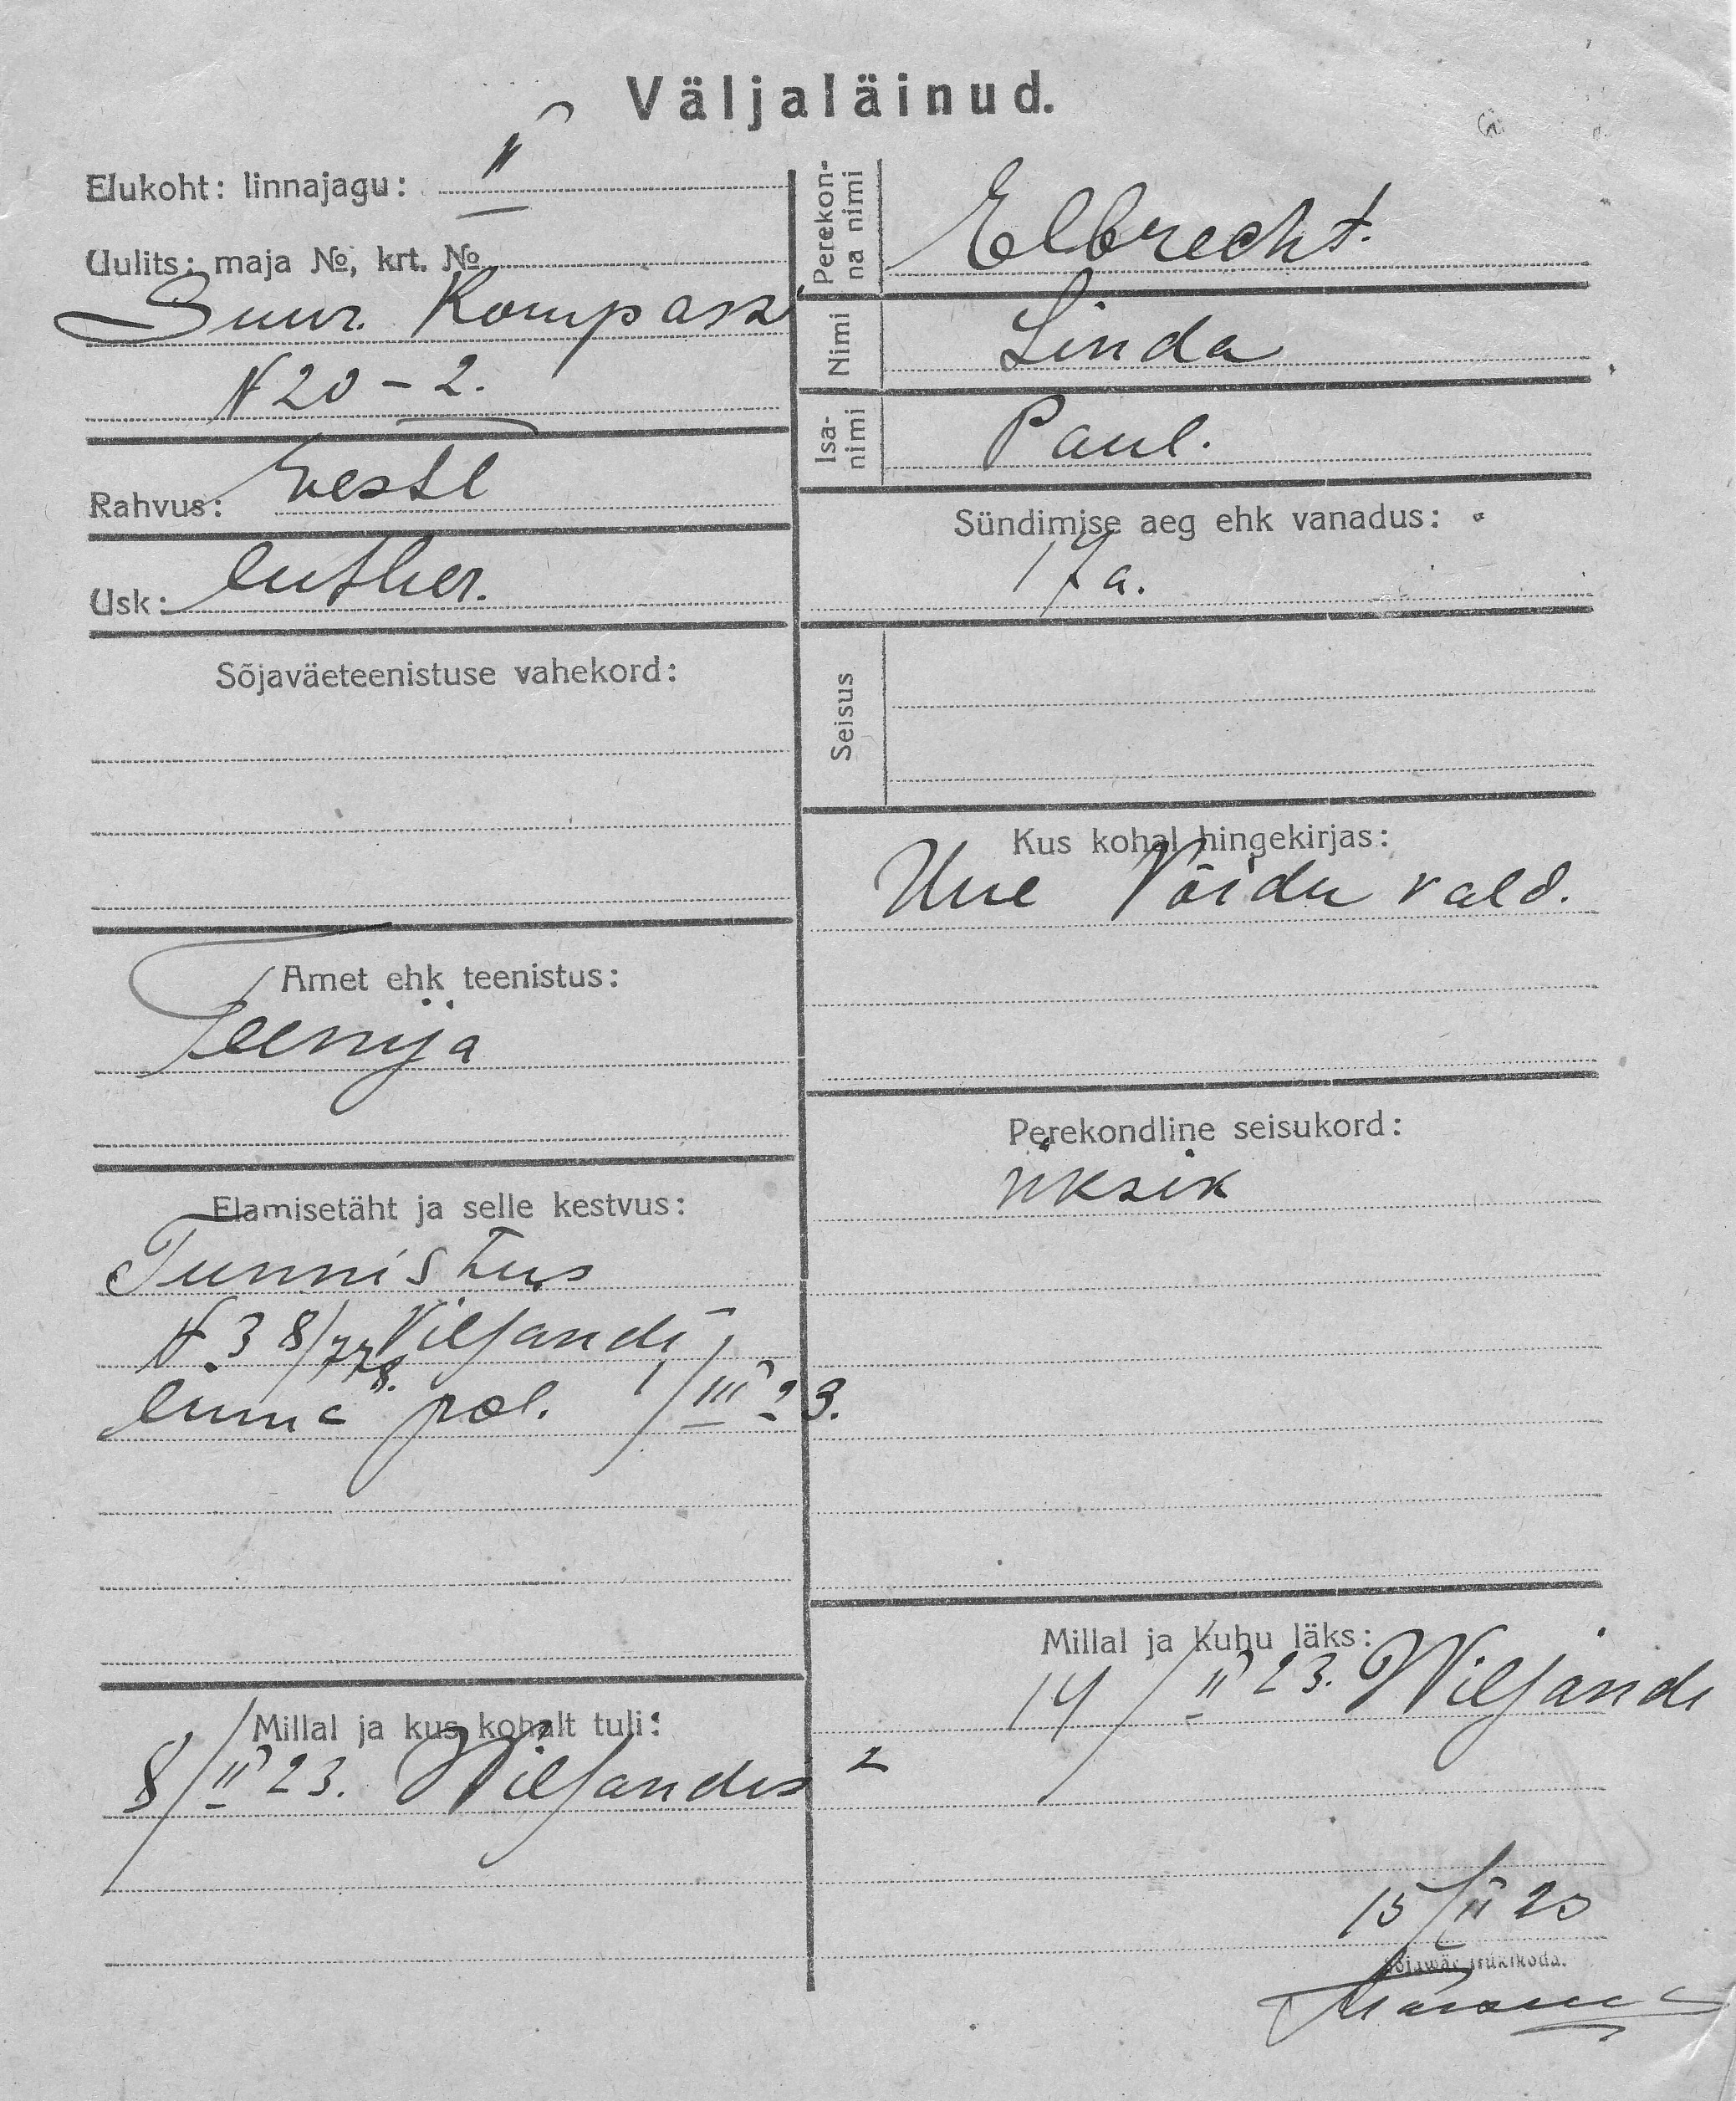 Väljaläinud.
Elukoht: linnajagu: II
Uulits: maja №, krt. №
Suur. Kompass
N 20 – 2.
Rahvus: Eesti
Usk: luther.
Sõjaväeteenistuse vahekord:
Amet ehk teenistus:
Teenija
Elamisetäht ja selle kestvus:
Tunnistus
N. 38/778. Viljandi
linna pol. 1/III 23.
Millal ja kus kohalt tuli:
8/II 23. Wiljandis
Perekon-
na nimi
Elbrecht.
Nimi
Linda
Isa-
nimi
Paul.
Sündimise aeg ehk vanadus:
17 a.
Seisus
Kus kohal hingekirjas:
Uue Võidu vald.
Perekondline seisukord:
üksik
Millal ja kuhu läks:
14/II 23. Wiljandi
15/II 23
Sõjawäe trükikoda.